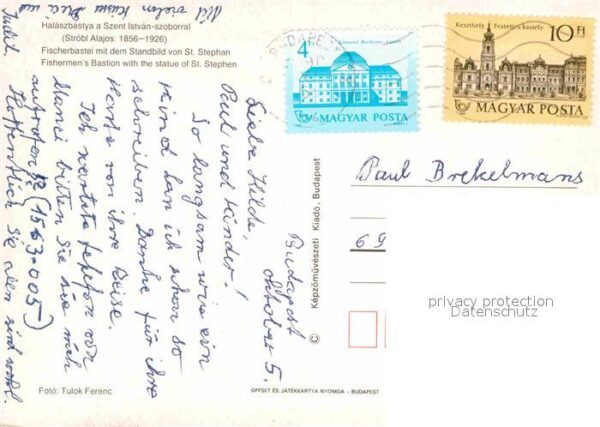 Halászbástya a Szent István-szoborral
(Stróbl Alajos: 1856–1926)
Fischerbastei mit dem Standbild von St. Stephan
Fishermen's Bastion with the statue of St. Stephen
BUDAPEST
4
MAGYAR POSTA
Keszthely Festetics kastély
10 Ft
MAGYAR POSTA
Budapest
oktober 5.
Liebe Hilde,
Paul und Kinder!
So langsam wie ein
Kind kan ich schon so
schreiben. Danke für ihre
Karte von ihre Reise.
Ich wartete telefon von
Manci bitten Sie sie mich
(1563-005)
Hoffentlich sie
Judit.
Paul Brekelmans
69
privacy protection
Datenschutz
© Képzőművészeti Kiadó, Budapest
Fotó: Tulok Ferenc
OFFSET ÉS JÁTÉKKÁRTYA NYOMDA – BUDAPEST